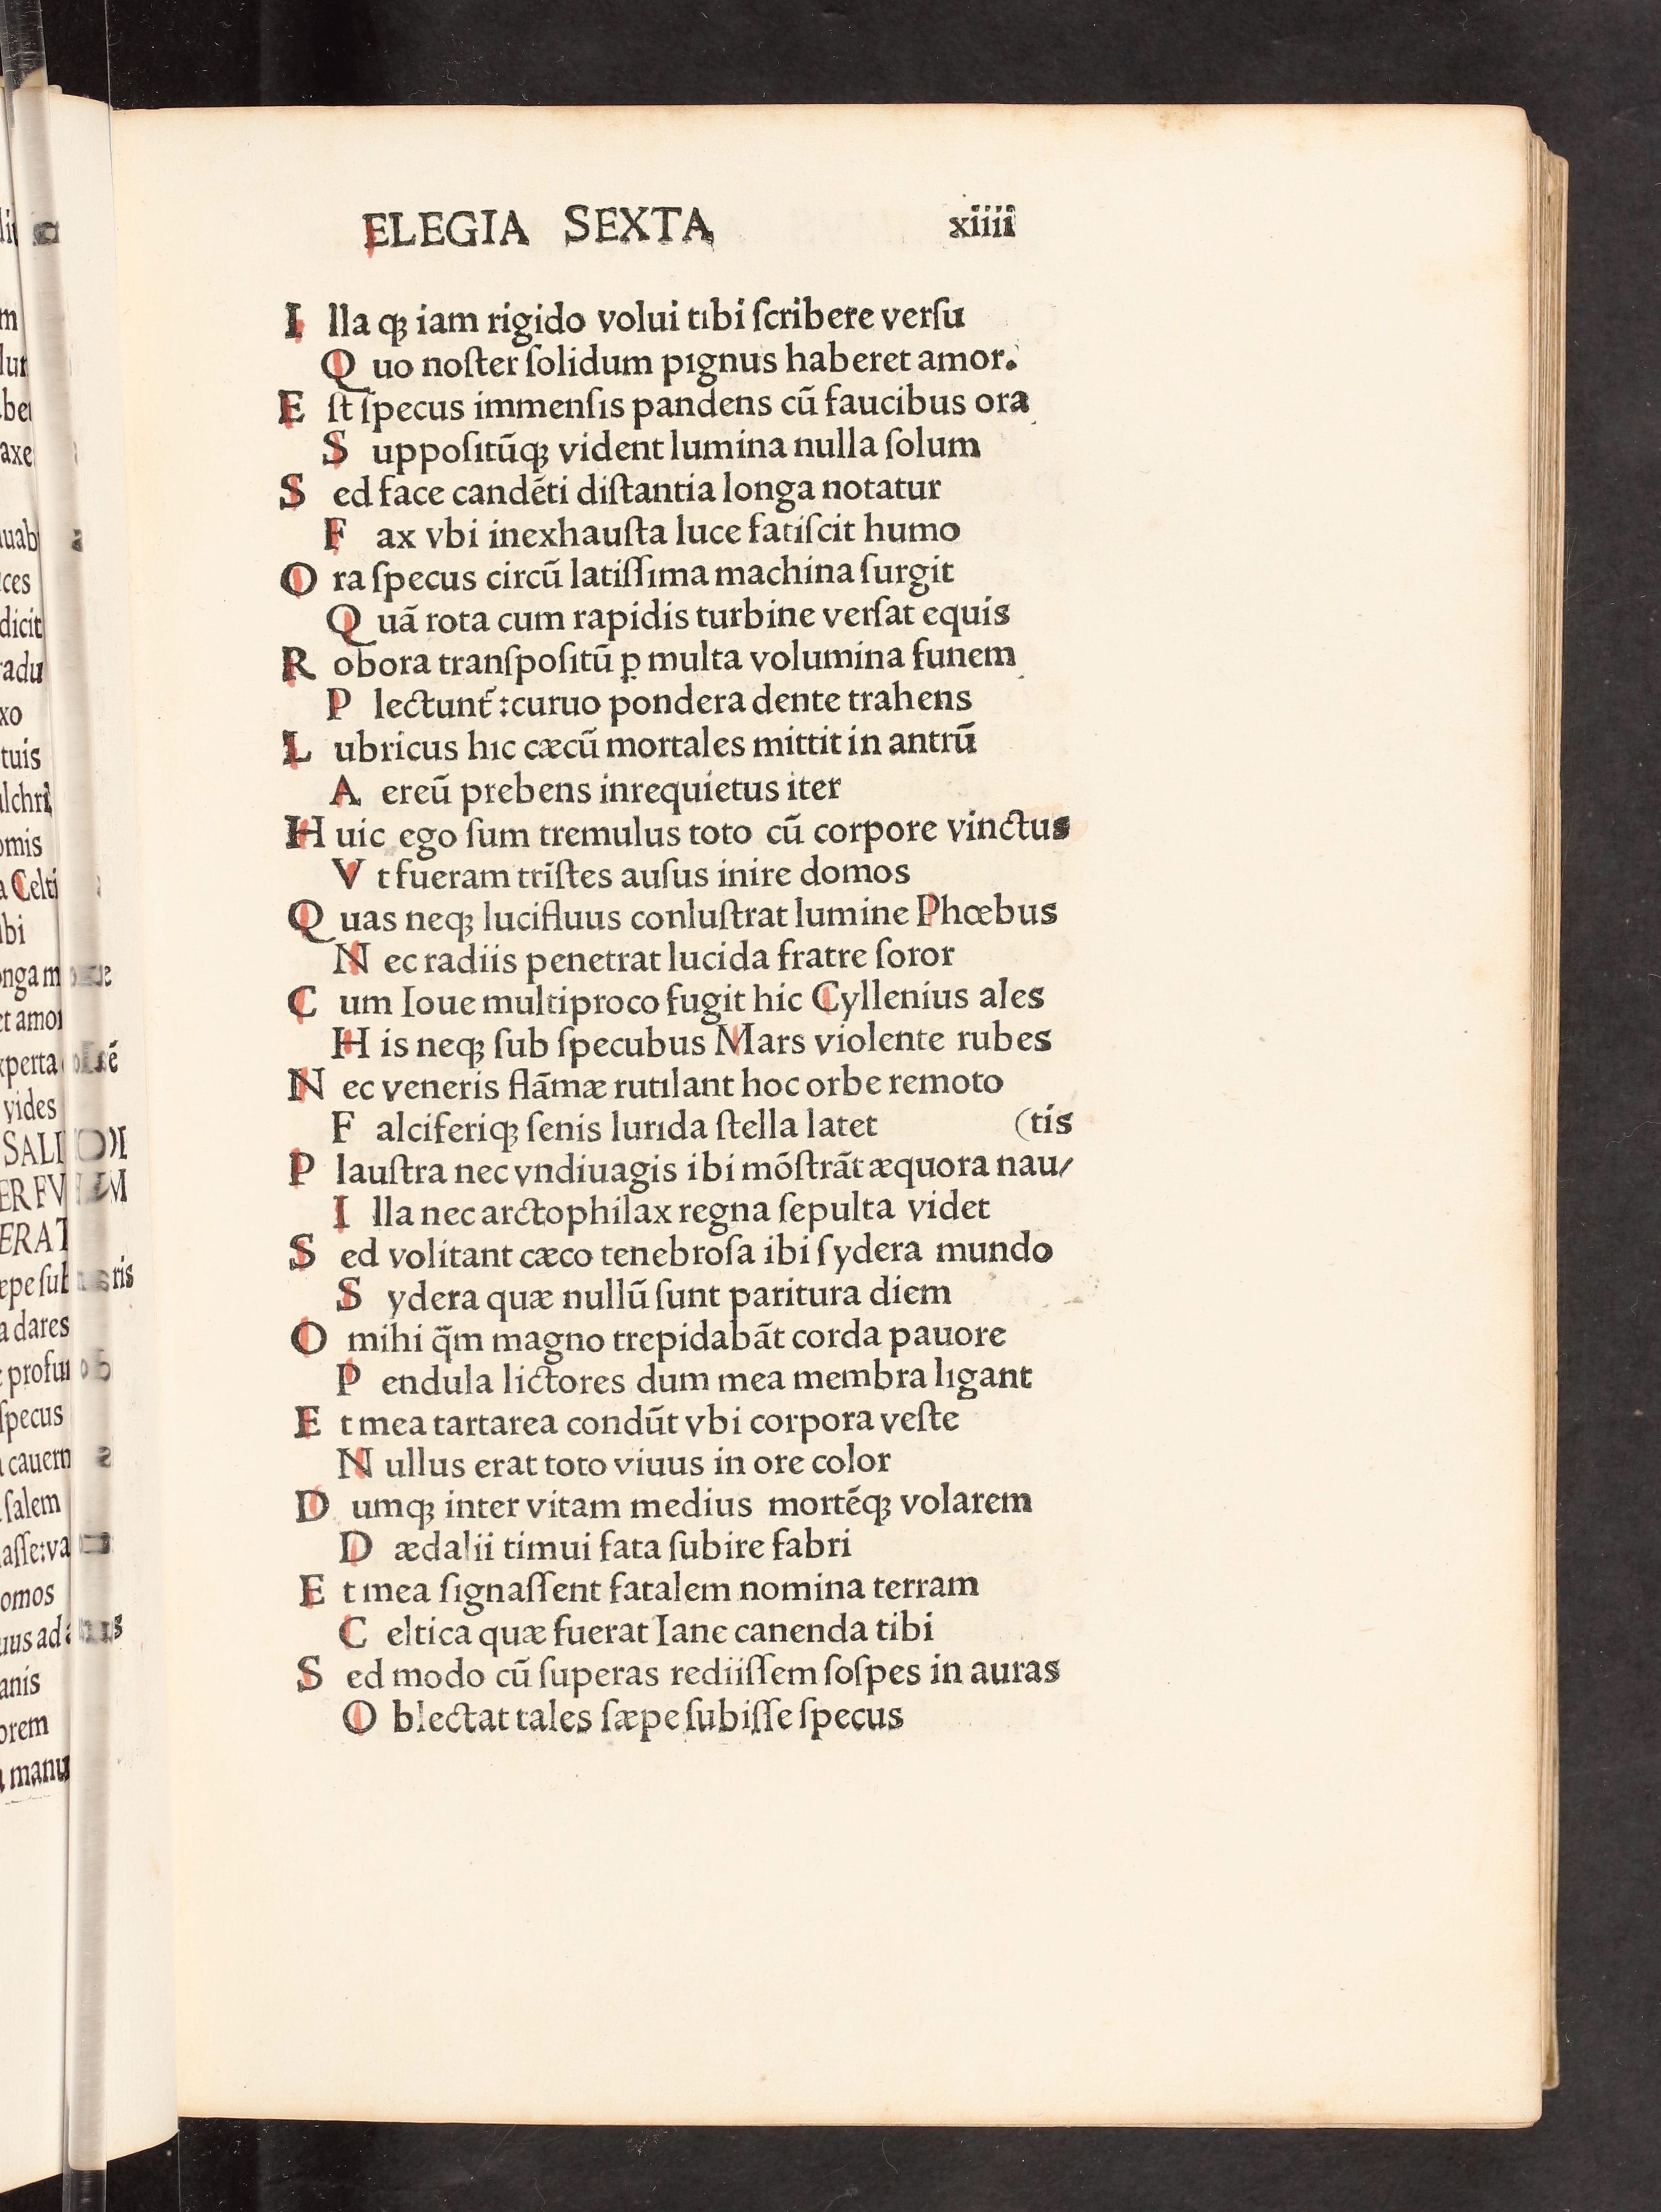 ELEGIA SEXTA xiiii
I lla qꝫ iam rigido volui tibi ſcribere verſu
Q uo noſter ſolidum pignus haberet amor.
E ſt ſpecus immenſis pandens cū faucibus ora
S uppoſitūqꝫ vident lumina nulla ſolum
S ed face candēti diſtantia longa notatur
F ax vbi inexhauſta luce fatiſcit humo
O ra ſpecus circū latiſſima machina ſurgit
Q uā rota cum rapidis turbine verſat equis
R obora tranſpoſitū ꝑ multa volumina funem
P lectunt᷑:curuo pondera dente trahens
L ubricus hic cæcū mortales mittit in antrū
A ereū prebens inrequietus iter
H uic ego ſum tremulus toto cū corpore vinctus
V t fueram triſtes auſus inire domos
Q uas neqꝫ lucifluus conluſtrat lumine Phœbus
N ec radiis penetrat lucida fratre ſoror
C um Ioue multiproco fugit hic Cyllenius ales
H is neqꝫ ſub ſpecubus Mars violente rubes
N ec veneris flāmæ rutilant hoc orbe remoto
F alciferiqꝫ ſenis lurida ſtella latet (tis
P lauſtra nec vndiuagis ibi mōſtrāt æquora nau/
I lla nec arctophilax regna ſepulta videt
S ed volitant cæco tenebroſa ibi ſydera mundo
S ydera quæ nullū ſunt paritura diem
O mihi q̄m magno trepidabāt corda pauore
P endula lictores dum mea membra ligant
E t mea tartarea condūt vbi corpora veſte
N ullus erat toto viuus in ore color
D umqꝫ inter vitam medius mortēqꝫ volarem
D ædalii timui fata ſubire fabri
E t mea ſignaſſent fatalem nomina terram
C eltica quæ fuerat Iane canenda tibi
S ed modo cū ſuperas rediiſſem ſoſpes in auras
O blectat tales ſæpe ſubiſſe ſpecus